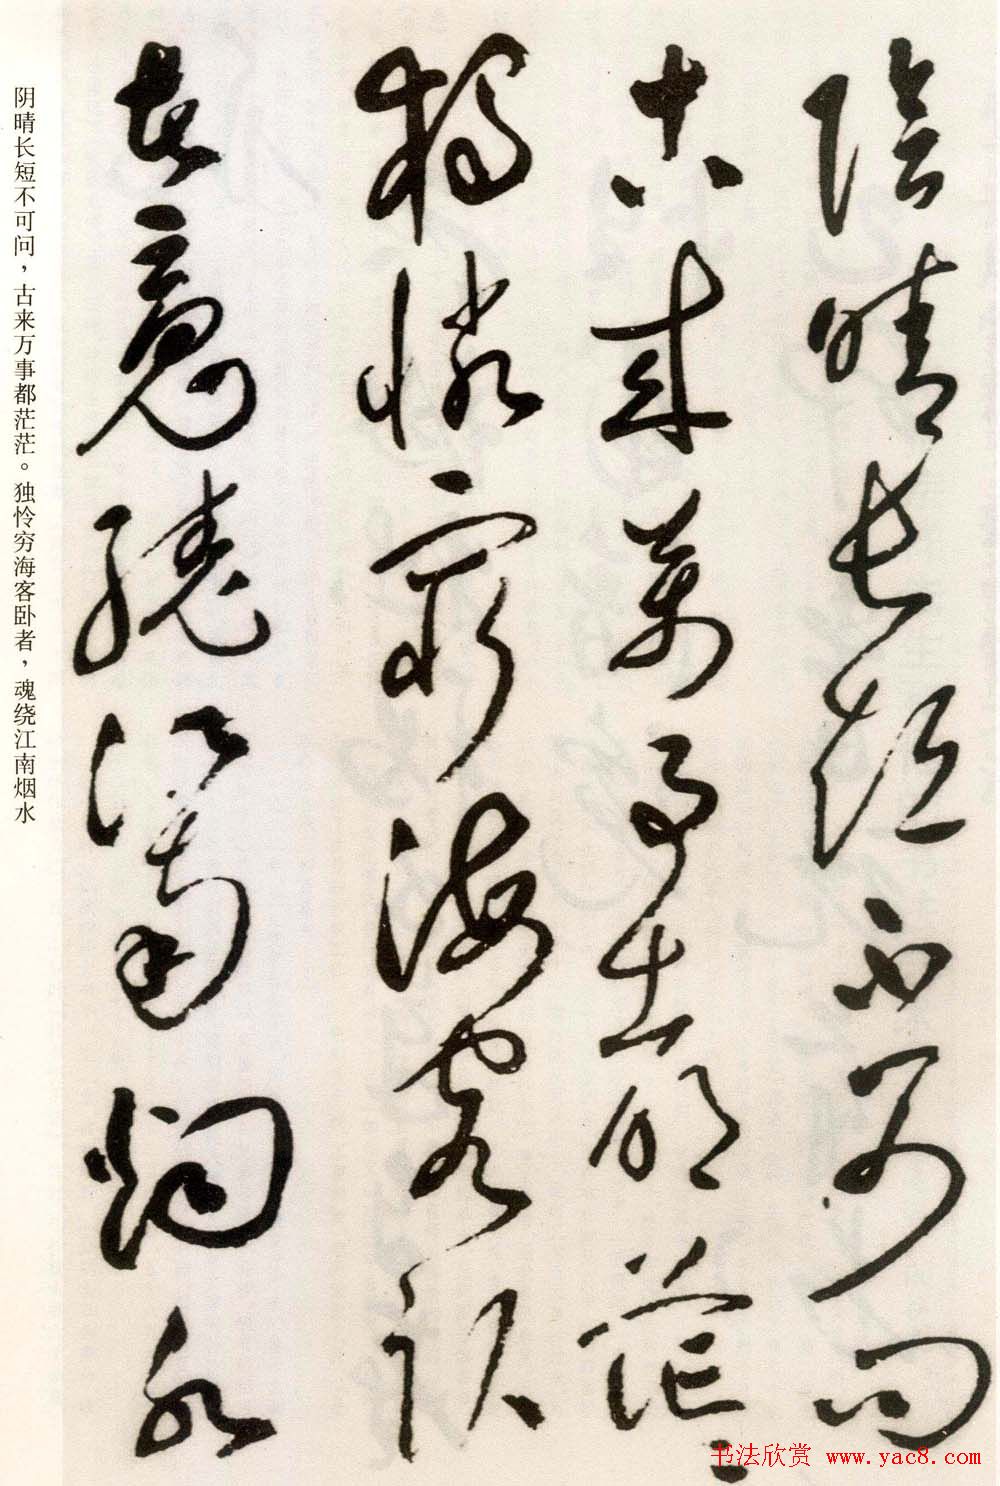 陰晴長短不可問
古來萬事都茫〻
獨憐窮海客臥
者魂繞江南烟水
阴晴长短不可问，古来万事都茫茫。独怜穷海客卧者，魂绕江南烟水
书法欣赏 www.yac8.com